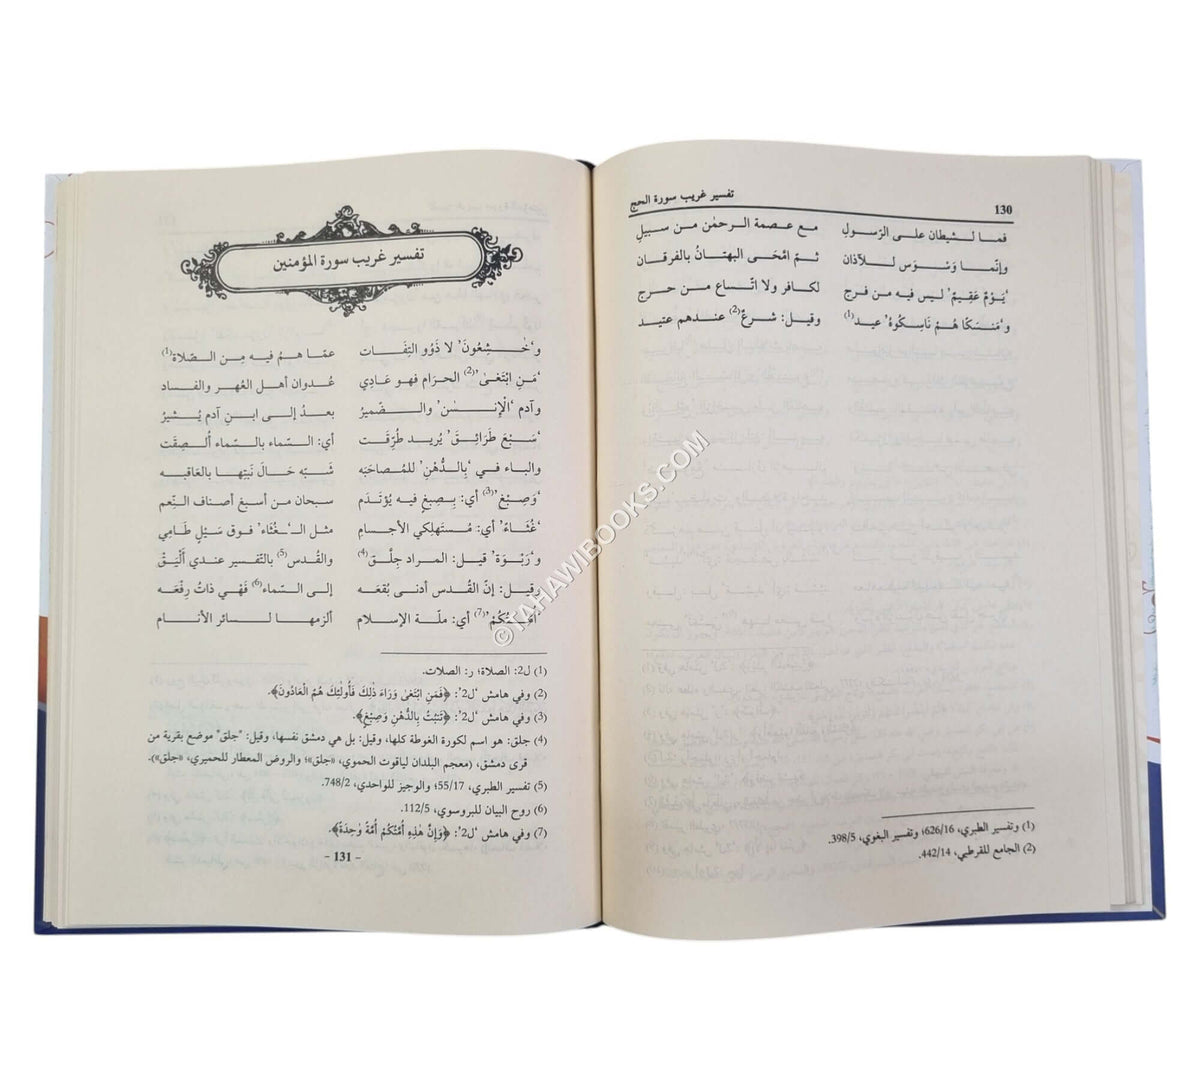 130
تفسير غريب سورة الحج
فما لشيطان على الرّسولِ مع عصمة الرحمٰن من سبيلِ
وإنّما وَسْوَس للآذان ثمّ امْحَى البهتانُ بالفرقان
'يَوْمٌ عَقِيمٌ' ليس فيه من فرج لكافر ولا اتّساع من حرج
و'مَنسَكًا هُمْ نَاسِكُوهُ' عيد(1) وقيل: شرعٌ(2) عندهم عتيد
(1) وتفسير الطبري، 626/16؛ وتفسير البغوي، 398/5.
(2) الجامع للقرطبي، 442/14.
تفسير غريب سورة المؤمنين
و'خَٰشِعُونَ' لا ذَوُو التِفَات عمّا هـمُ فيه مِن الصّلاة(1)
'مَنِ ابْتَغىٰ'(2) الحرَام فهو عادِي عُدوان أهل العُهر والفساد
وآدم 'الْإِنسٰن' والضّميرُ بعدُ إلى ابنِ آدم يُشيرُ
'سَبْعَ طَرَائِقَ' يُريد طُرِّقت أي: السّماء بالسّماء أُلصِقَت
والباء في 'بِالدُّهْنِ' للمُصاحَبَه شَبْه حَالَ نَبْتِها بالعَاقبه
'وَصِبْغ'(3) أي: بِصِبغ فيه يُؤتَدَم سبحان من أسبغ أصناف النِّعم
'غُثَاءً' أي: مُستَهلِكي الأجسام مثل الـ'غُثَاء' فوق سَيْلٍ طَامِي
و'رَبْوَة' قيل: المراد جِلَّق(4) والقُدس(5) بالتّفسير عندي أَلْيَقْ
وقيل: إنّ القُدس أدنى بُقعَه إلى السّماء(6) فَهْي ذاتُ رِفْعَه
'أُمَّتُكُمْ'(7) أي: ملّة الإسلام ألزمها لسائر الأنام
(1) ل2: الصلاة؛ ر: الصلات.
(2) وفي هامش 'ل2': ﴿فَمَنِ ابْتَغىٰ وَرَاءَ ذٰلِكَ فَأُولٰئِكَ هُمُ الْعَادُونَ﴾.
(3) وفي هامش 'ل2': ﴿تَنبُتُ بِالدُّهْنِ وَصِبْغٍ﴾.
(4) جلق: هو اسم لكورة الغوطة كلها، وقيل: بل هي دمشق نفسها، وقيل: "جلق" موضع بقرية من
قرى دمشق، (معجم البلدان لياقوت الحموي، «جلق»؛ والروض المعطار للحميري، «جلق»).
(5) تفسير الطبري، 55/17؛ والوجيز للواحدي، 748/2.
(6) روح البيان للبروسوي، 112/5.
(7) وفي هامش 'ل2': ﴿وَإِنَّ هٰذِهِ أُمَّتُكُمْ أُمَّةً وَاحِدَةً﴾.
- 131 -
©TAHAWIBOOKS.COM